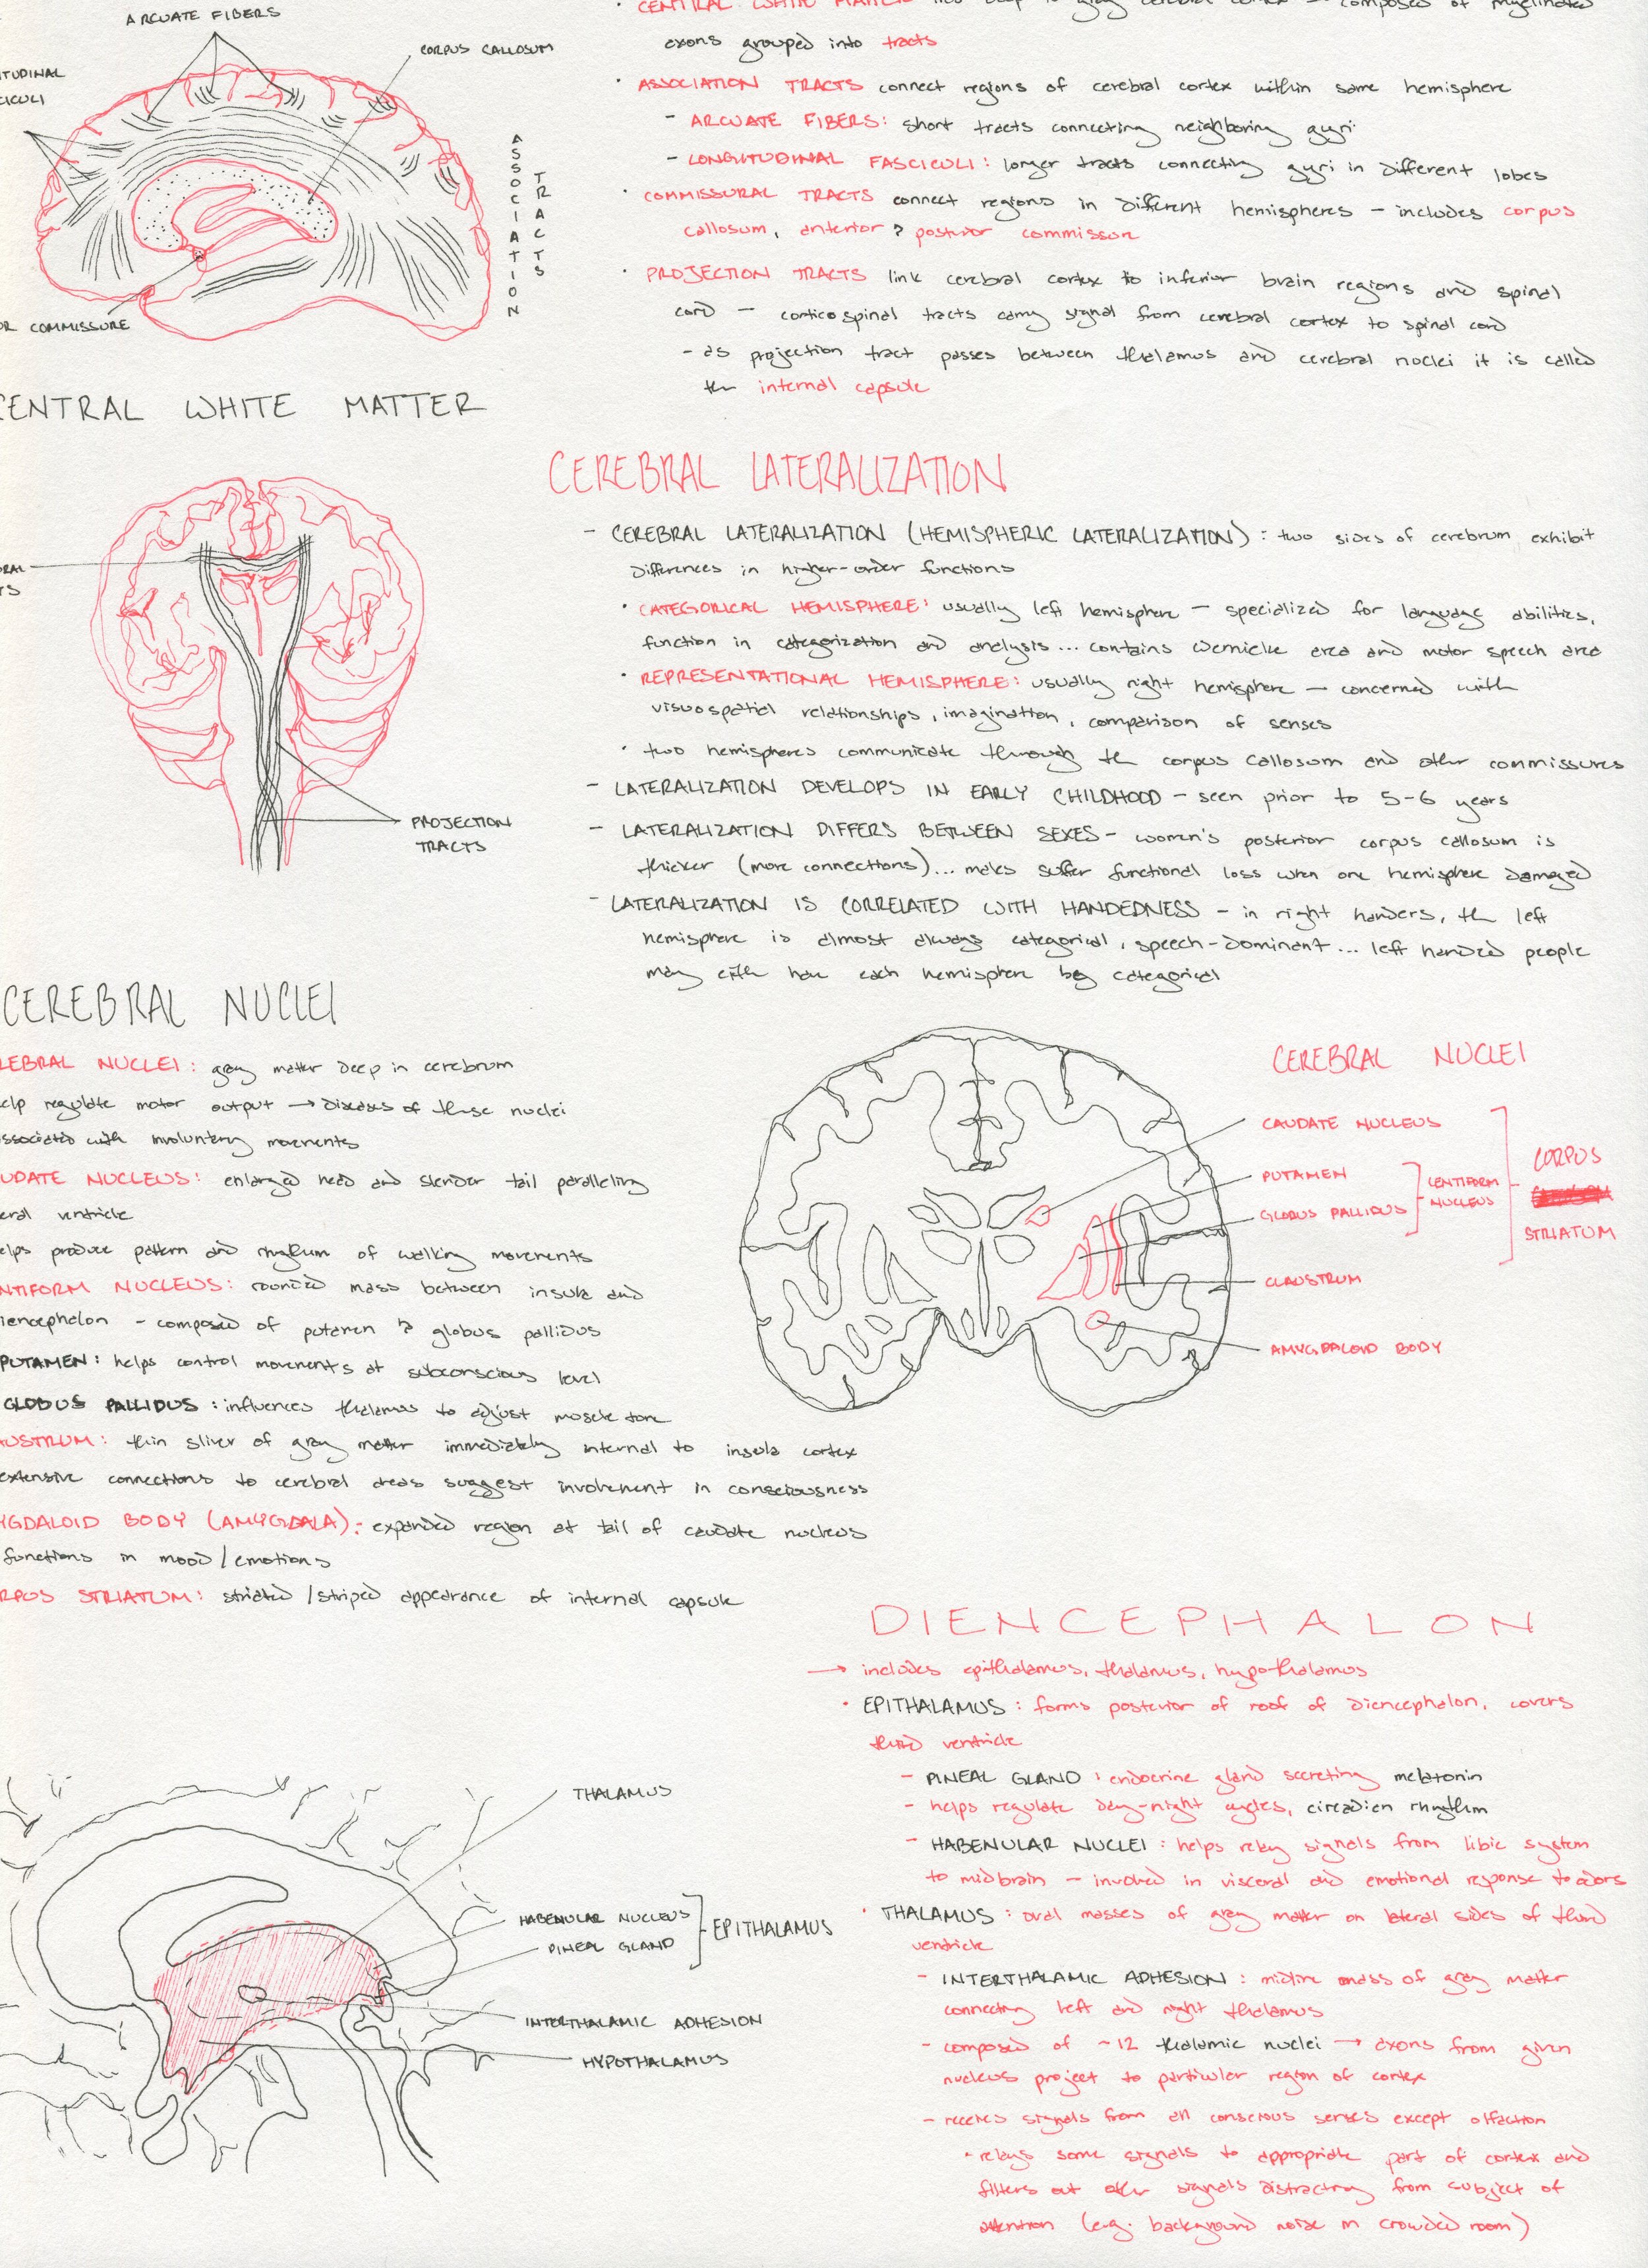 ARCUATE FIBERS
CORPUS CALLOSUM
ITUDINAL
CICULI
ASSOCIATION
TRACTS
OR COMMISSURE
CENTRAL WHITE MATTER
CENTRAL WHITE MATTER lies deep to gray cerebral cortex – composed of myelinated
axons grouped into tracts
• ASSOCIATION TRACTS connect regions of cerebral cortex within same hemisphere
- ARCUATE FIBERS: short tracts connecting neighboring gyri
- LONGITUDINAL FASCICULI: longer tracts connecting gyri in different lobes
• COMMISSURAL TRACTS connect regions in different hemispheres – includes corpus
callosum, anterior & posterior commissure
• PROJECTION TRACTS link cerebral cortex to inferior brain regions and spinal
cord – corticospinal tracts carry signal from cerebral cortex to spinal cord
- as projection tract passes between thalamus and cerebral nuclei it is called
the internal capsule
RAL
TS
PROJECTION
TRACTS
CEREBRAL LATERALIZATION
- CEREBRAL LATERALIZATION (HEMISPHERIC LATERALIZATION): two sides of cerebrum exhibit
differences in higher-order functions
• CATEGORICAL HEMISPHERE: usually left hemisphere – specialized for language abilities,
function in categorization and analysis... contains wernicke area and motor speech area
• REPRESENTATIONAL HEMISPHERE: usually right hemisphere – concerned with
visuospatial relationships, imagination, comparison of senses
• two hemispheres communicate through the corpus callosum and other commissures
- LATERALIZATION DEVELOPS IN EARLY CHILDHOOD – seen prior to 5-6 years
- LATERALIZATION DIFFERS BETWEEN SEXES – women's posterior corpus callosum is
thicker (more connections)... males suffer functional loss when one hemisphere damaged
- LATERALIZATION IS CORRELATED WITH HANDEDNESS – in right handers, the left
hemisphere is almost always categorical, speech-dominant... left handed people
may eith have each hemisphere be categorical
CEREBRAL NUCLEI
REBRAL NUCLEI: gray matter deep in cerebrum
elp regulate motor output → diseases of these nuclei
ssociated with involuntary movements
UDATE NUCLEUS: enlarged head and slender tail paralleling
eral ventricle
elps produce pattern and rhythm of walking movements
NTIFORM NUCLEUS: rounded mass between insula and
iencephalon - composed of putamen & globus pallidus
PUTAMEN: helps control movements at subconscious level
GLOBUS PALLIDUS: influences thalamus to adjust muscle tone
AUSTRUM: thin sliver of gray matter immediately internal to insula cortex
extensive connections to cerebral areas suggest involvement in consciousness
YGDALOID BODY (AMYGDALA): expanded region at tail of caudate nucleus
functions in mood/emotions
RPUS STRIATUM: striated/striped appearance of internal capsule
CEREBRAL NUCLEI
CAUDATE NUCLEUS
PUTAMEN
GLOBUS PALLIDUS
LENTIFORM
NUCLEUS
CORPUS
STRIATUM
CLAUSTRUM
AMYGDALOID BODY
DIENCEPHALON
→ includes epithalamus, thalamus, hypothalamus
• EPITHALAMUS: forms posterior of roof of diencephalon, covers
third ventricle
- PINEAL GLAND: endocrine gland secreting melatonin
- helps regulate day-night cycles, circadien rhythm
- HABENULAR NUCLEI: helps relay signals from libic system
to midbrain – involved in visceral and emotional response to odors
• THALAMUS: oval masses of gray matter on lateral sides of third
ventricle
- INTERTHALAMIC ADHESION: midline mass of gray matter
connecting left and right thalamus
- composed of ~12 thalamic nuclei → axons from given
nucleus project to particular region of cortex
- receives signals from all conscious senses except olfaction
• relays some signals to appropriate part of cortex and
filters out other signals distracting from subject of
attention (e.g. background noise in crowded room)
THALAMUS
HABENULAR NUCLEUS
PINEAL GLAND
EPITHALAMUS
INTERTHALAMIC ADHESION
HYPOTHALAMUS